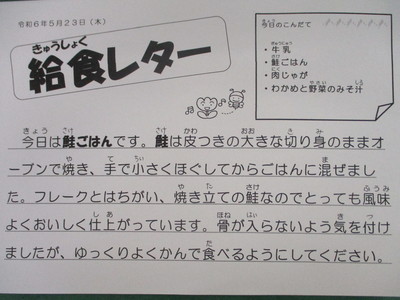 令和6年5月23日（木）
きゅうしょく
給食レター
今日のこんだて
・牛乳
・鮭ごはん
・肉じゃが
・わかめと野菜のみそ汁
今日は鮭ごはんです。鮭は皮つきの大きな切り身のままオ
ーブンで焼き、手で小さくほぐしてからごはんに混ぜまし
た。フレークとはちがい、焼き立ての鮭なのでとっても風味
よくおいしく仕上がっています。骨が入らないよう気を付け
ましたが、ゆっくりよくかんで食べるようにしてください。